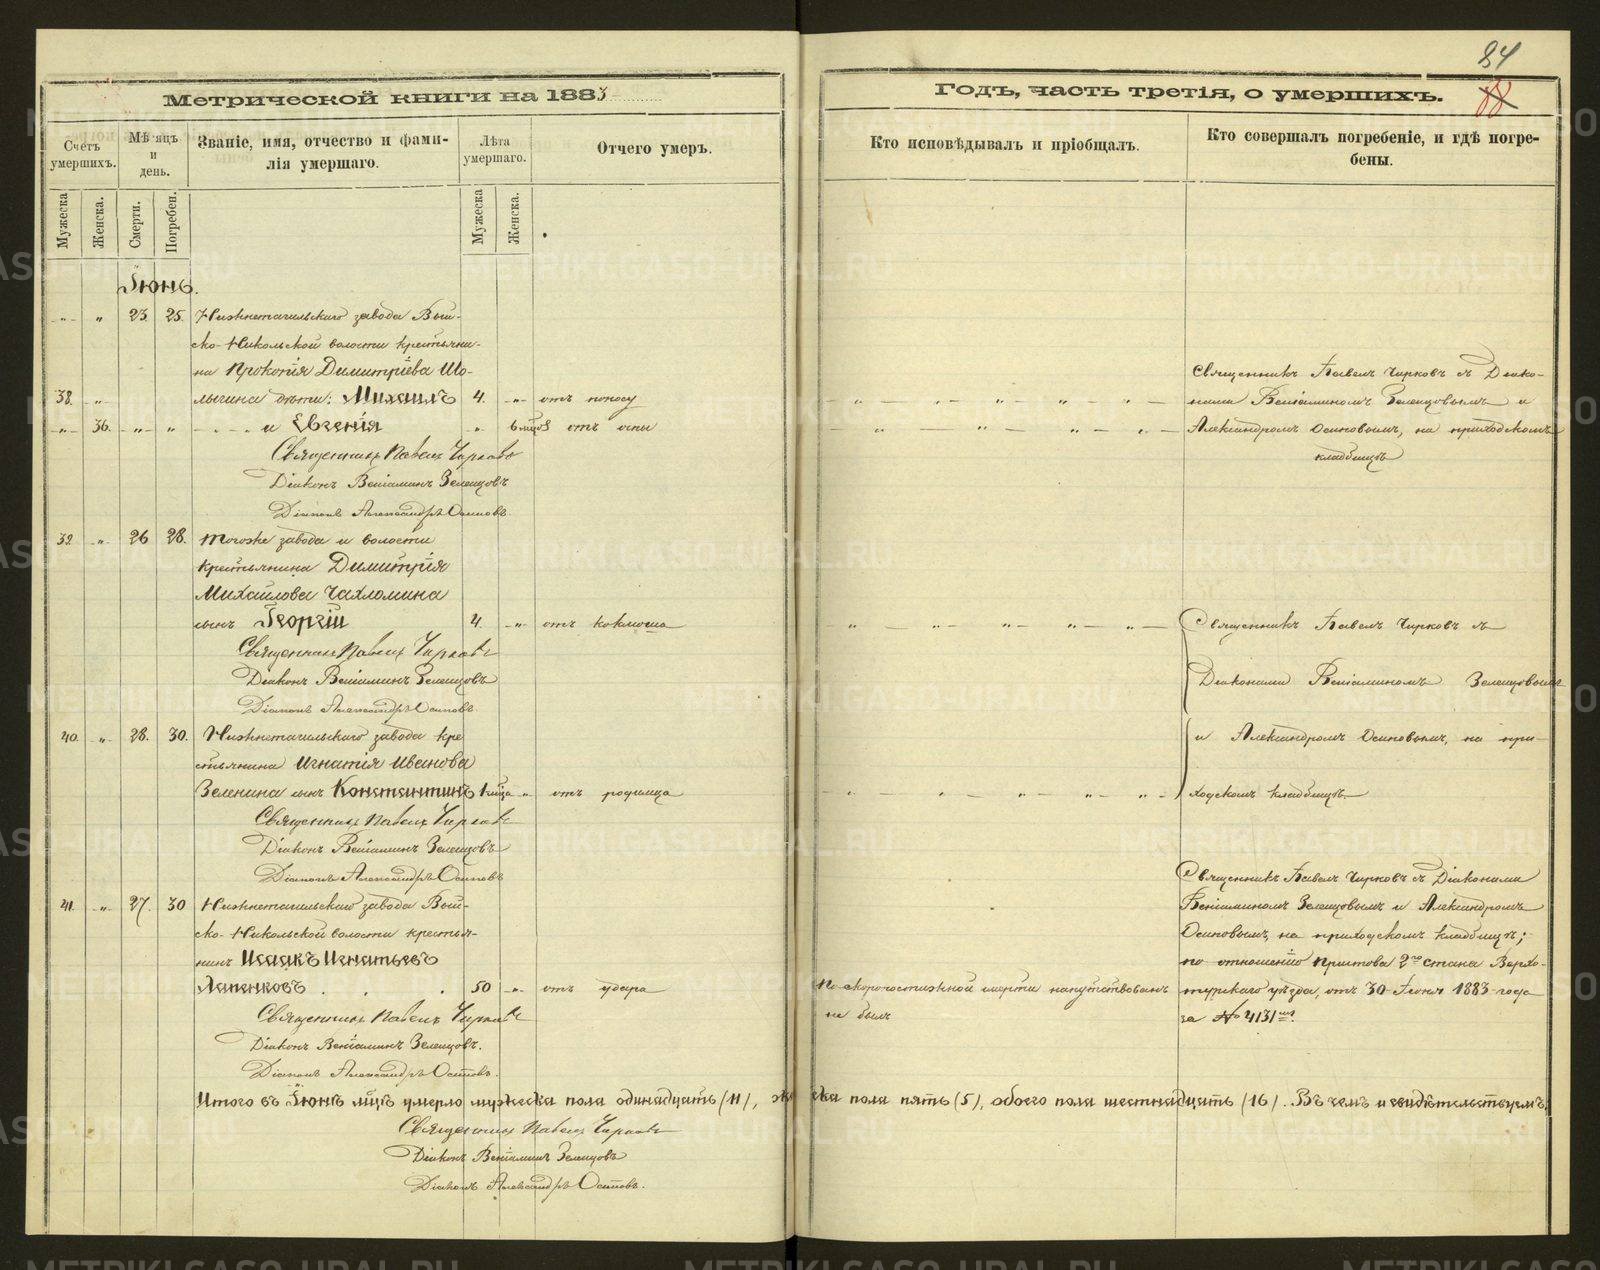 84
88
Метрической книги на 1883
Годъ, часть третія, о умершихъ.
Счетъ умершихъ.
Мѣсяцъ и день.
Званіе, имя, отчество и фами-
лія умершаго.
Лѣта умершаго.
Отчего умеръ.
Кто исповѣдывалъ и пріобщалъ.
Кто совершалъ погребеніе, и гдѣ погре-
бены.
Мужеска
Женска.
Смерти.
Погребен.
Мужеска
Женска.
Іюнь.
-"- " 23. 25. Нижнетагильскаго завода Вый-
ско-Никольской волости крестьяни-
на Прокопія Димитріева Шо-
Священникъ Павелъ Чирковъ съ Діако-
38. -"- лыгина дѣти: Михаилъ 4. -"- отъ поносу
нами Веніаминомъ Зеленцовымъ и
-"- 36. -"- " и Евгенія " 6 мцовъ отъ оспы
Александромъ Осиповымъ, на приходскомъ
кладбищѣ
Священникъ Павелъ Чирковъ
Діаконъ Веніаминъ Зеленцовъ
Діаконъ Александръ Осиповъ.
39. -"- 26 28. Тогоже завода и волости
крестьянина Димитрія
Михайлова Чахломина
сынъ Георгій 4. -"- отъ коклюша
Священникъ Павелъ Чирковъ съ
Священникъ Павелъ Чирковъ
Діаконъ Веніаминъ Зеленцовъ
Діаконами Веніаминомъ Зеленцовымъ
Діаконъ Александръ Осиповъ.
40. " 28. 30. Нижнетагильскаго завода кре
и Александромъ Осиповымъ, на при-
стьянина Игнатія Иванова
Зеленина сынъ Константинъ 1 мца " отъ родимца
ходскомъ кладбищѣ.
Священникъ Павелъ Чирковъ
Діаконъ Веніаминъ Зеленцовъ
Діаконъ Александръ Осиповъ
Священникъ Павелъ Чирковъ съ Діаконами
41. -"- 27. 30 Нижнетагильскаго завода Вый-
Веніаминомъ Зеленцовымъ и Александромъ
ско-Никольской волости крестья-
Осиповымъ, на приходскомъ кладбищѣ;
нинъ Исаакъ Игнатьевъ
по отношенію Пристава 2го стана Верхо-
Лапенковъ 50 -"- отъ удара
По скоропостижной смерти напутствованъ
турскаго уѣзда, отъ 30 Іюня 1883 года
не былъ
за № 4131мъ.
Священникъ Павелъ Чирковъ
Діаконъ Веніаминъ Зеленцовъ.
Діаконъ Александръ Осиповъ.
Итого въ Іюнѣ мцѣ умерло мужеска пола одинадцать (11), женска пола пять (5), обоего пола шестнадцать (16). Въ чемъ и свидѣтельствуемъ:
Священникъ Павелъ Чирковъ
Діаконъ Веніаминъ Зеленцовъ
Діаконъ Александръ Осиповъ.
METRIKI.GASO-URAL.RU